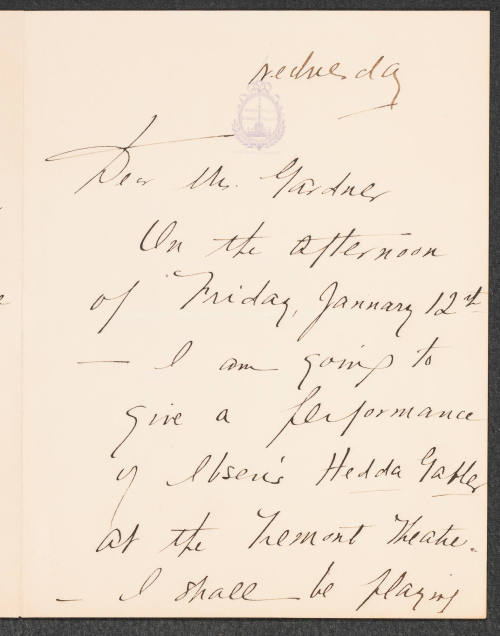 Wednesday
Dear Mrs. Gardner
On the afternoon
of Friday, January 12th
— I am going to
give a performance
of Ibsen's Hedda Gabler
at the Tremont Theatre.
— I shall be playing